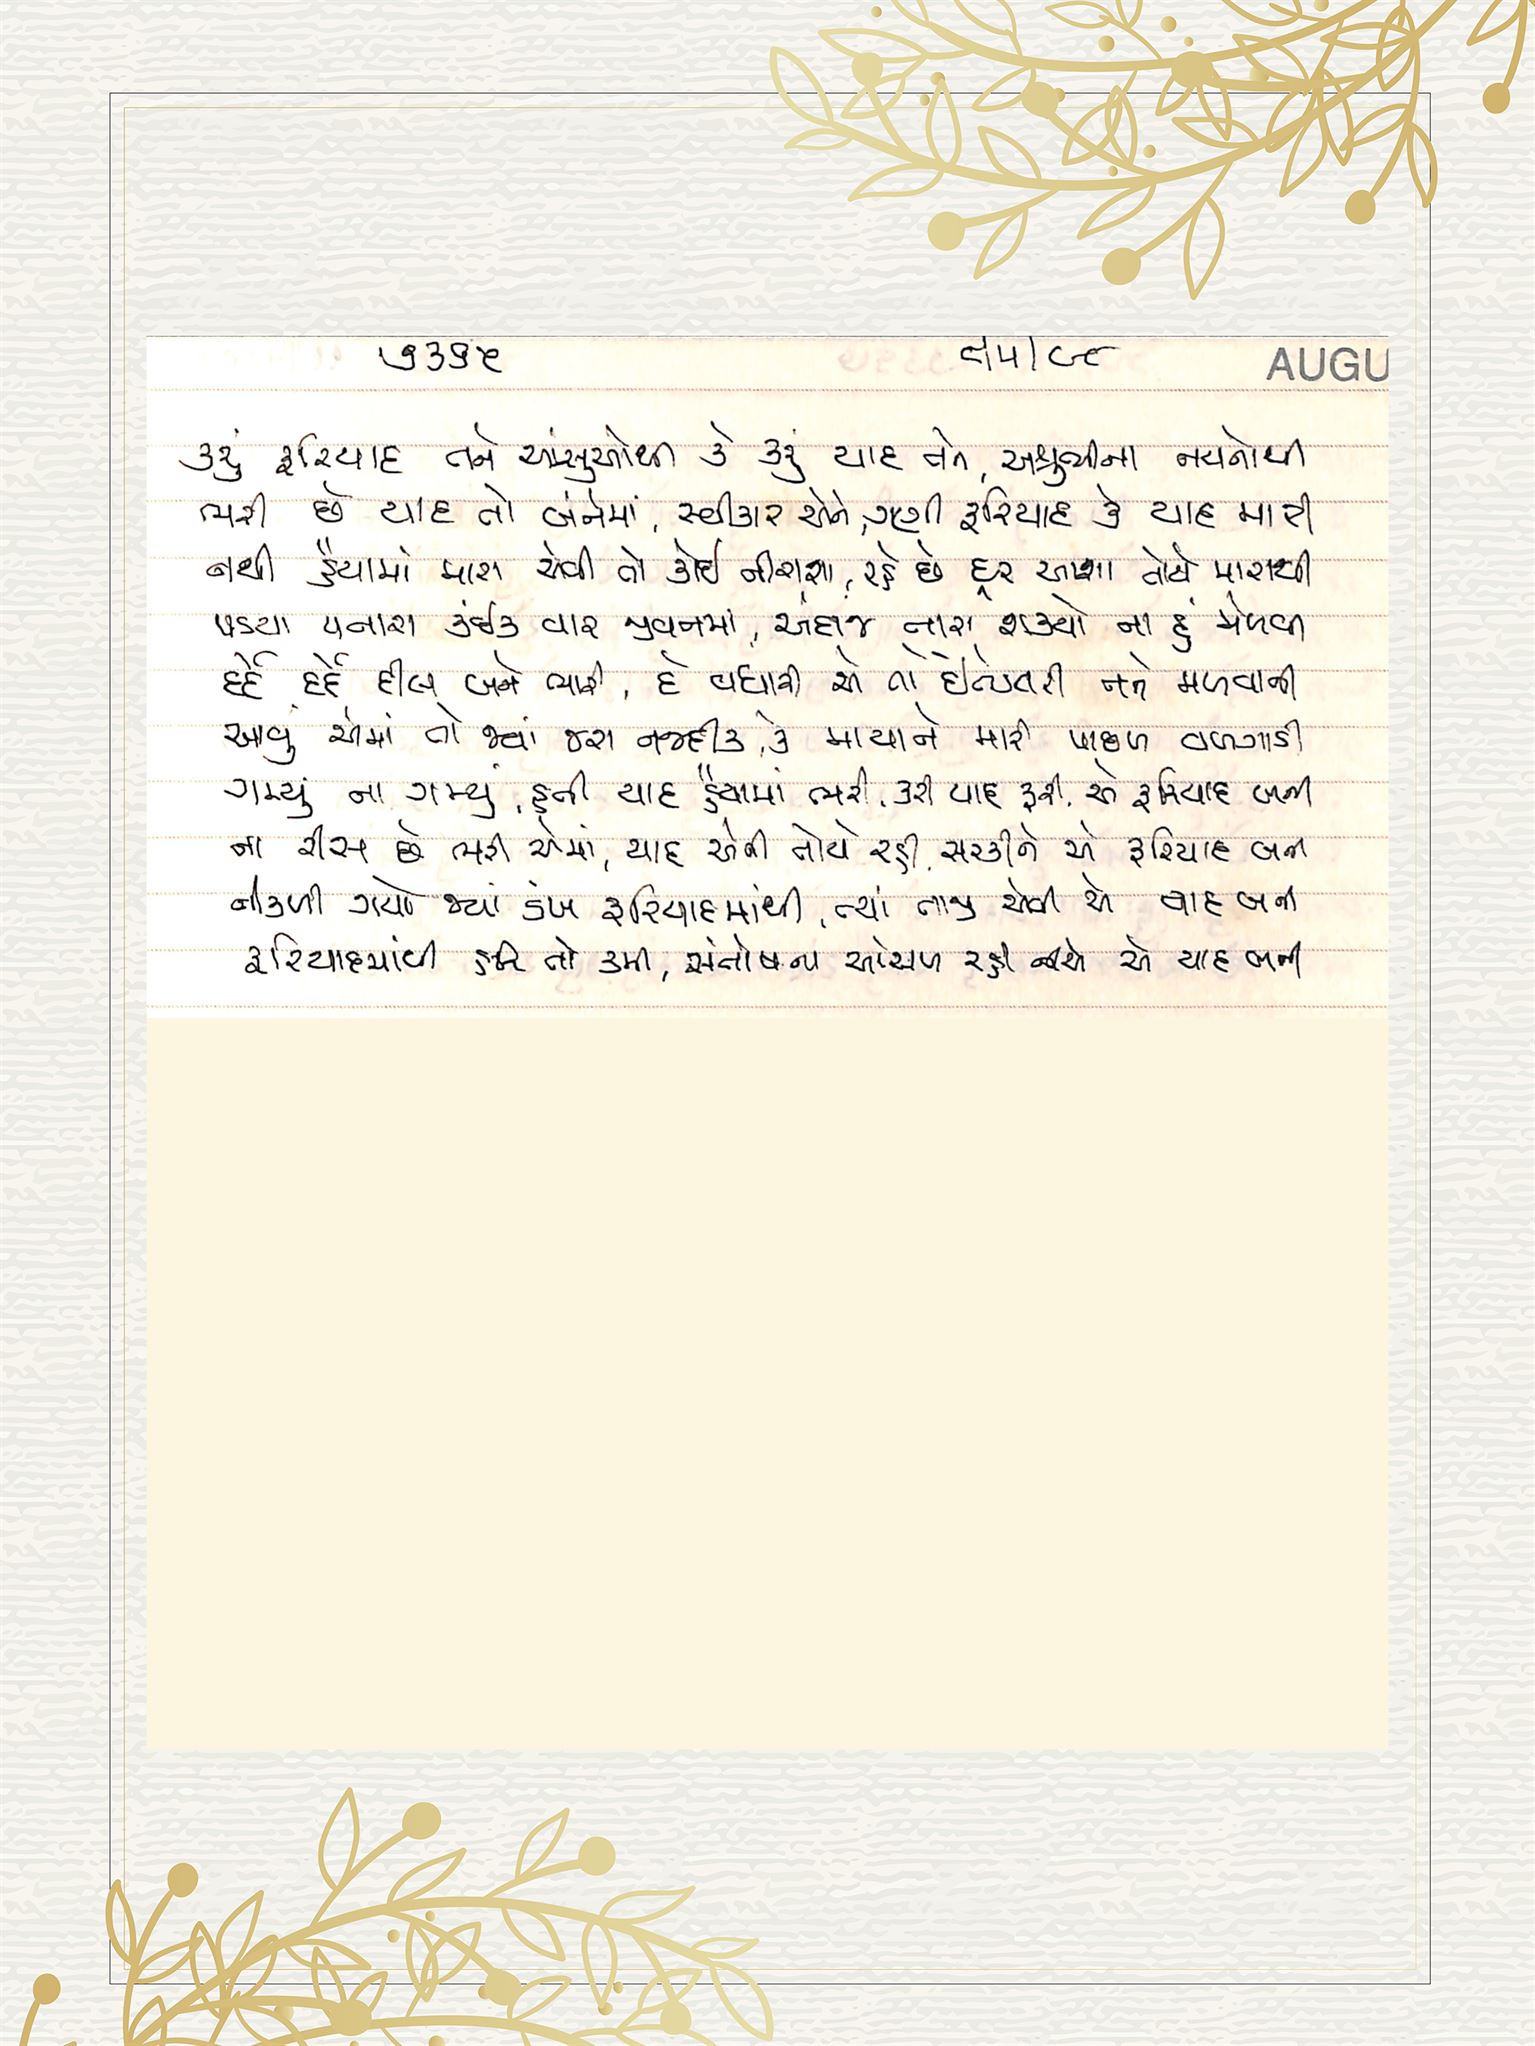 ૭૩૬૨ ૯/૫/૯૮ AUGU
કરું ફરિયાદ તને આંસુઓથી કે કરું યાદ તને, અશ્રુભીના નયનોથી
ભરી છે યાદ તો બંનેમાં, સ્વીકાર એને, ગણી ફરિયાદ કે યાદ મારી
નથી હૈયામાં મારા એવી તો કોઈ નીરાશા, રહે છે દૂર આશા તોયે મારાથી
પડયા પનારા કંઈક વાર જીવનમાં, અંદાજ તારો શક્યો ના હું મેળવી
દર્દે દર્દે દીલ બને ભારી, દે વધારી એ તો ઇંતેજારી તને મળવાની
આવું એમાં તો જ્યાં જરા નજદીક, કે માયાને મારી પાછળ વળગાડી
ગમ્યું ના ગમ્યું, હતી યાદ હૈયામાં ભરી, કરી યાદ ફરી, એ ફરિયાદ બની
ના રીસ છે ભરી એમાં, યાદ એવી તોયે રહી, સરકીને એ ફરિયાદ બની
નીકળી ગયો જ્યાં ડંખ ફરિયાદમાંથી, ત્યાં તાજી એવી એ યાદ બની
ફરિયાદમાંથી હતી તો કમી, સંતોષના ઓસળ રહી એ યાદ બની